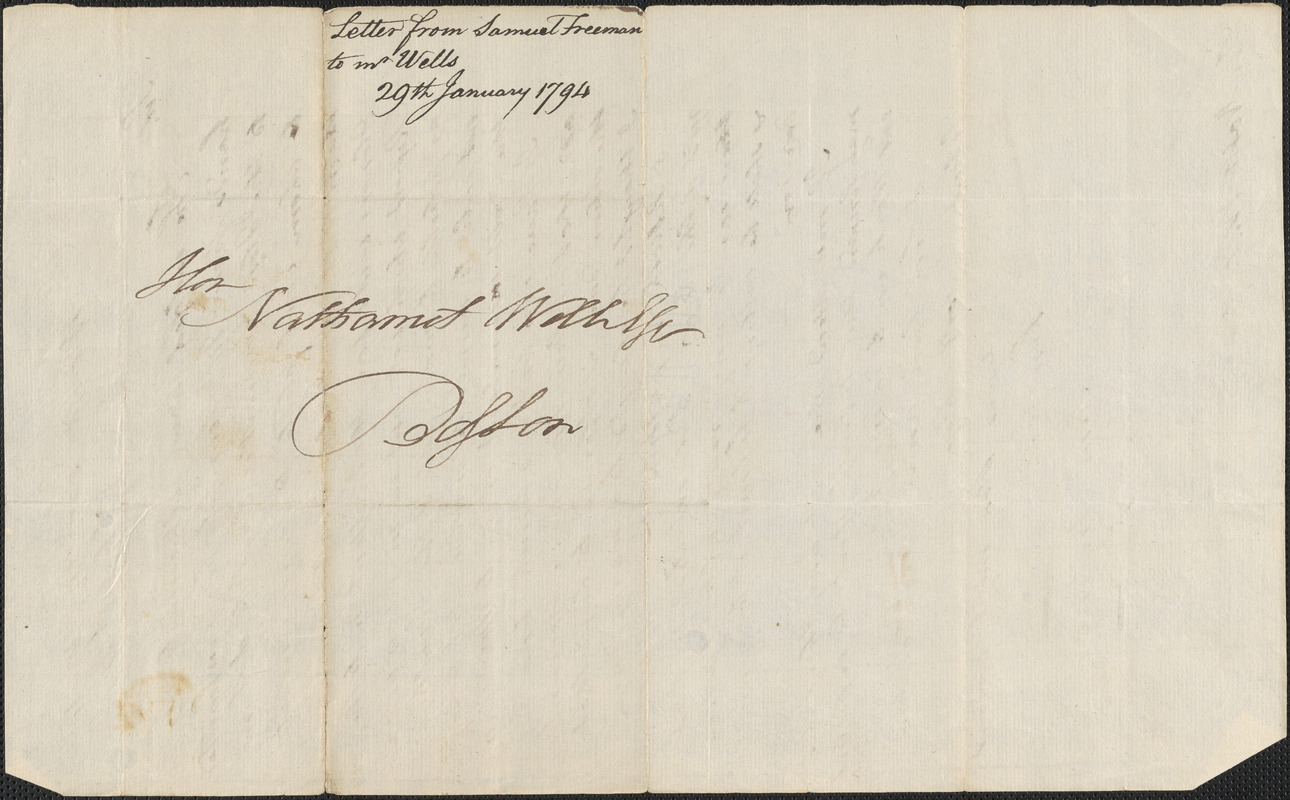 Letter from Samuel Freeman
to mr Wells
29th January 1794
Hon
Nathaniel Wells Esqr
Boston